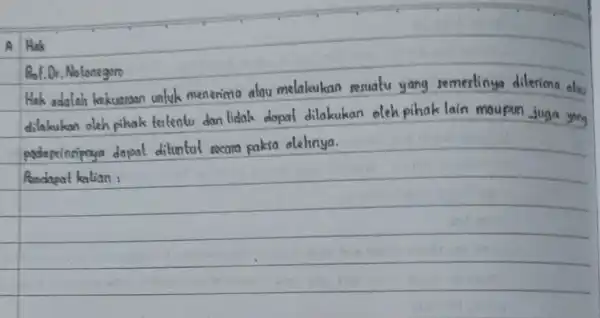 A Hak
Prof. Dr. Notonegoro
Hak adalah kekuasaan untuk menerima atau melakukan sesuatu yang semestinya diterima atau
dilakukan oleh pihak tertentu dan tidak dapat dilakukan oleh pihak lain maupun juga yang
pada prinsipnya dapat dituntut secara paksa olehnya.
Pendapat kalian :